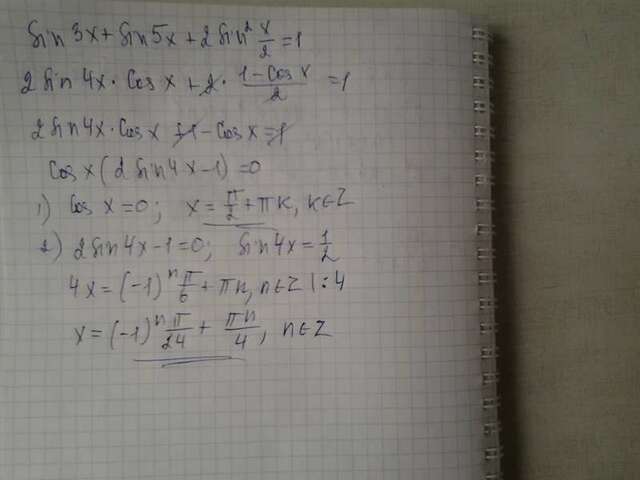 sin 3x + sin 5x + 2 sin² x/2 = 1
2 sin 4x · cos x + 2 · (1 - cos x)/2 = 1
2 sin 4x · cos x + 1 - cos x = 1
cos x (2 sin 4x - 1) = 0
1) cos x = 0; x = π/2 + πk, k∈Z
2) 2 sin 4x - 1 = 0; sin 4x = 1/2
4x = (-1)ⁿ π/6 + πn, n∈Z | : 4
x = (-1)ⁿ π/24 + πn/4, n∈Z